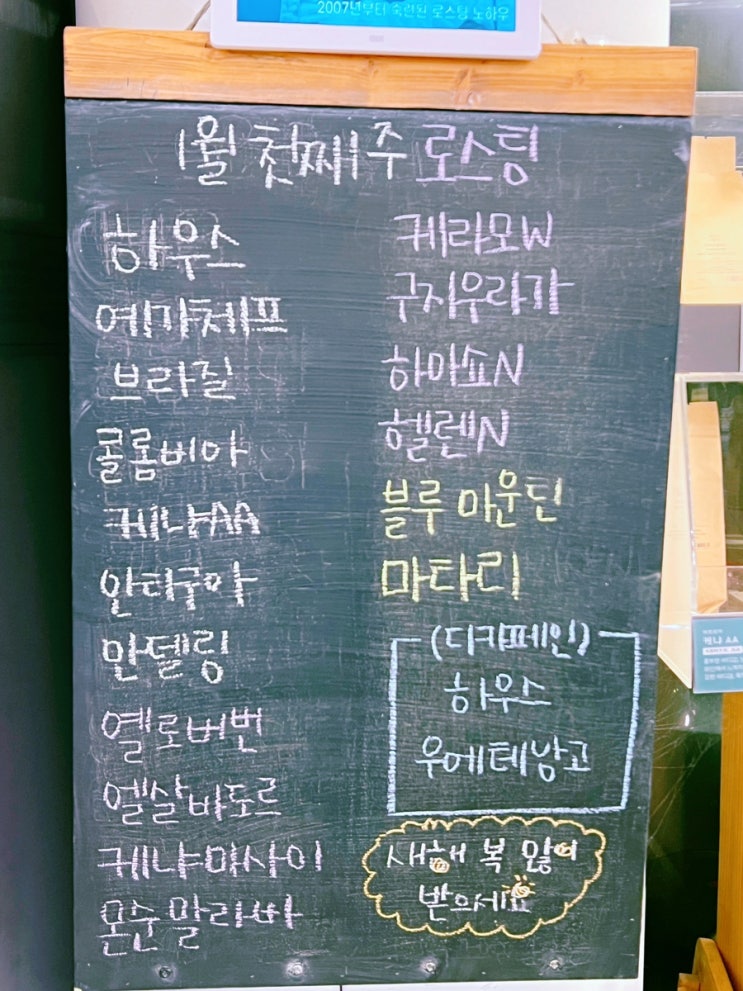 2007년부터 숙련된 로스팅 노하우
1월 첫째주 로스팅
하우스
예가체프
브라질
콜롬비아
케냐AA
안티구아
만델링
옐로버번
엘살바도르
케냐미사이
몬순말라바
케라모W
구지우라가
하마쇼N
헬렌N
블루 마운틴
마타리
(디카페인)
하우스
우에테낭고
새해 복 많이
받으세요
케냐 AA